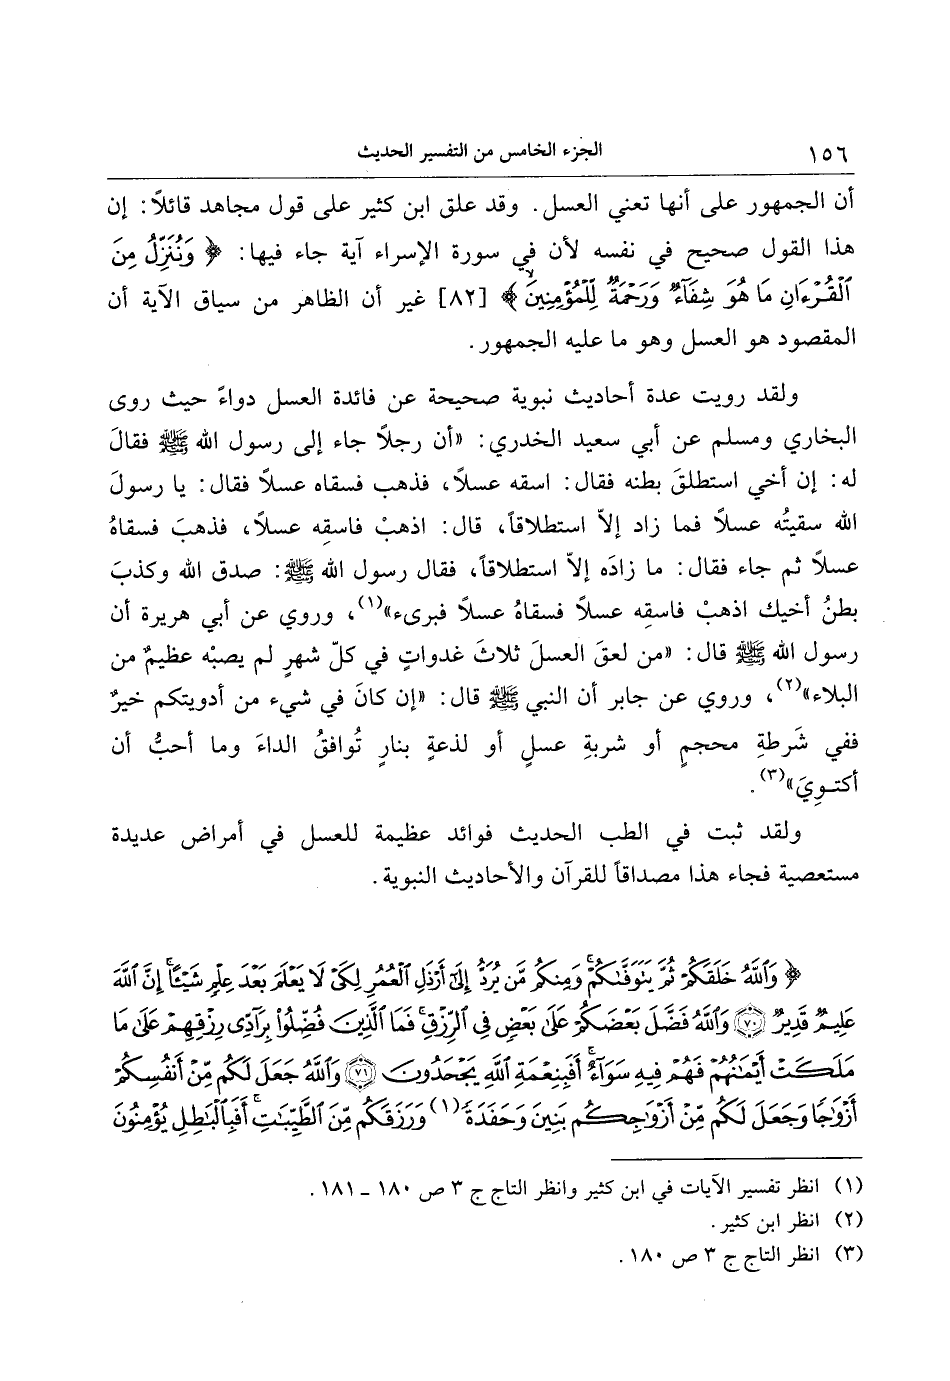 ١٥٦ الجزء الخامس من التفسير الحديث
أن الجمهور على أنها تعني العسل. وقد علق ابن كثير على قول مجاهد قائلاً: إن
هذا القول صحيح في نفسه لأن في سورة الإسراء آية جاء فيها: ﴿ وَنُنَزِّلُ مِنَ
ٱلْقُرْءَانِ مَا هُوَ شِفَآءٌ وَرَحْمَةٌ لِّلْمُؤْمِنِينَۙ ﴾ [٨٢] غير أن الظاهر من سياق الآية أن
المقصود هو العسل وهو ما عليه الجمهور.
ولقد رويت عدة أحاديث نبوية صحيحة عن فائدة العسل دواءً حيث روى
البخاري ومسلم عن أبي سعيد الخدري: «أن رجلاً جاء إلى رسول الله ﷺ فقالَ
له: إن أخي استطلقَ بطنه فقال: اسقه عسلاً، فذهب فسقاه عسلاً فقال: يا رسولَ
الله سقيتُه عسلاً فما زاد إلاّ استطلاقاً، قال: اذهبْ فاسقِه عسلاً، فذهبَ فسقاهُ
عسلاً ثم جاء فقال: ما زادَه إلاّ استطلاقاً، فقال رسول الله ﷺ: صدق الله وكذبَ
بطنُ أخيك اذهبْ فاسقِه عسلاً فسقاهُ عسلاً فبرىء»(١)، وروي عن أبي هريرة أن
رسول الله ﷺ قال: «من لعقَ العسلَ ثلاثَ غدواتٍ في كلّ شهرٍ لم يصبْه عظيمٌ من
البلاء»(٢)، وروي عن جابر أن النبي ﷺ قال: «إن كانَ في شيء من أدويتكم خيرٌ
ففي شَرطةِ محجمٍ أو شربةِ عسلٍ أو لذعةٍ بنارٍ تُوافقُ الداءَ وما أحبُّ أن
أكتوِيَ»(٣).
ولقد ثبت في الطب الحديث فوائد عظيمة للعسل في أمراض عديدة
مستعصية فجاء هذا مصداقاً للقرآن والأحاديث النبوية.
﴿ وَٱللَّهُ خَلَقَكُمْ ثُمَّ يَتَوَفَّىٰكُمْۚ وَمِنكُم مَّن يُرَدُّ إِلَىٰٓ أَرْذَلِ ٱلْعُمُرِ لِكَىْ لَا يَعْلَمَ بَعْدَ عِلْمٍ شَيْـًٔاۚ إِنَّ ٱللَّهَ
عَلِيمٌ قَدِيرٌ ۝٧٠ وَٱللَّهُ فَضَّلَ بَعْضَكُمْ عَلَىٰ بَعْضٍ فِى ٱلرِّزْقِۚ فَمَا ٱلَّذِينَ فُضِّلُوا۟ بِرَآدِّى رِزْقِهِمْ عَلَىٰ مَا
مَلَكَتْ أَيْمَٰنُهُمْ فَهُمْ فِيهِ سَوَآءٌۚ أَفَبِنِعْمَةِ ٱللَّهِ يَجْحَدُونَ ۝٧١ وَٱللَّهُ جَعَلَ لَكُم مِّنْ أَنفُسِكُمْ
أَزْوَٰجًا وَجَعَلَ لَكُم مِّنْ أَزْوَٰجِكُم بَنِينَ وَحَفَدَةً (١) وَرَزَقَكُم مِّنَ ٱلطَّيِّبَٰتِۚ أَفَبِٱلْبَٰطِلِ يُؤْمِنُونَ
(١) انظر تفسير الآيات في ابن كثير وانظر التاج ج ٣ ص ١٨٠ ـ ١٨١.
(٢) انظر ابن كثير.
(٣) انظر التاج ج ٣ ص ١٨٠.